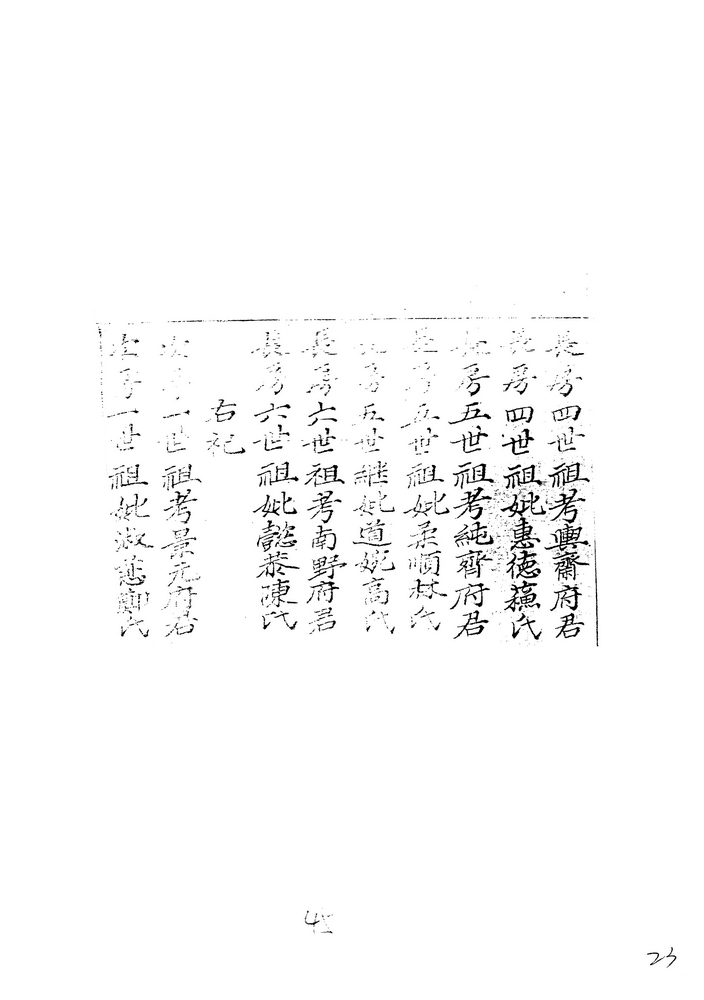 長房四世祖考輿齋府君
長房四世祖妣惠德蘓氏
長房五世祖考純齊府君
長房五世祖妣柔順林氏
長房五世継妣道婉高氏
長房六世祖考南野府君
長房六世祖妣懿恭陳氏
右祀
房一世祖考景元府君
房一世祖妣淑慈鄭氏
23